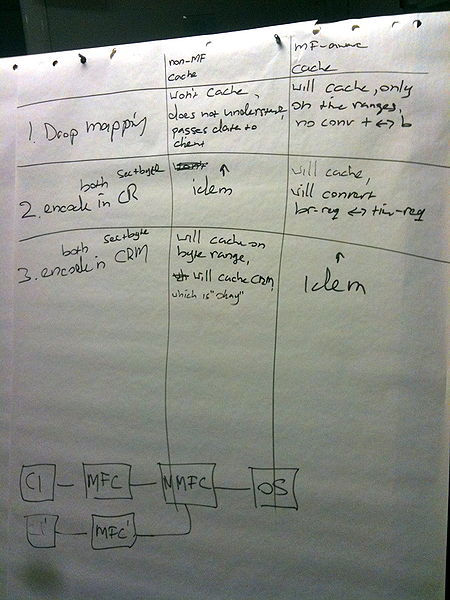 non-MF
cache
MF-aware
cache
1. Drop mapping
won't cache,
does not understand,
passes data to
client
will cache, only
on time ranges,
no conv t ↔ b
both sec+byte
2. encode in CR
↑
idem
will cache,
will convert
br-req ↔ tim-req
both sec+byte
3. encode in CRM
will cache on
byte range,
will cache CRM,
which is "okay"
↑
idem
C1
MFC
NMFC
OS
MFC'